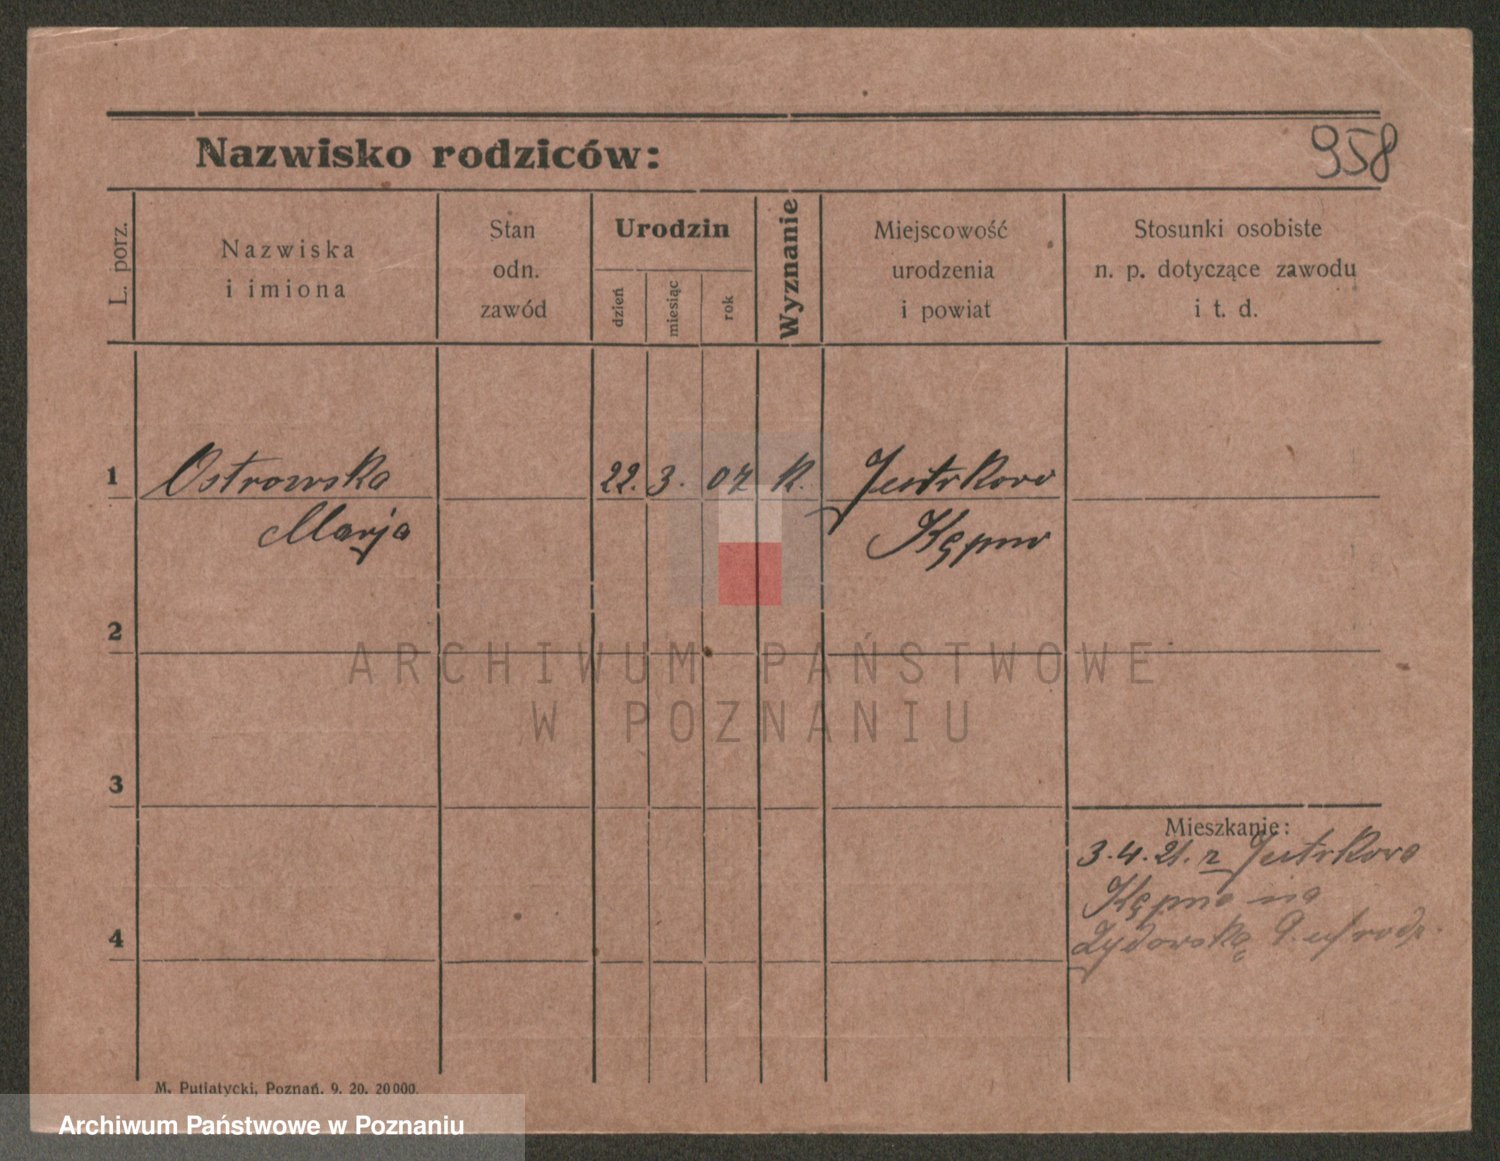 Nazwisko rodziców:
958
L. porz.
Nazwiska
i imiona
Stan
odn.
zawód
Urodzin
dzień
miesiąc
rok
Wyznanie
Miejscowość
urodzenia
i powiat
Stosunki osobiste
n. p. dotyczące zawodu
i t. d.
1 Ostrowska 22. 3. 07 K.
Marja Kępno
2
ARCHIWUM PAŃSTWOWE
W POZNANIU
3
Mieszkanie:
3. 4. 21. z
Kępno na
4 Żydowską 9.
M. Putiatycki, Poznań. 9. 20. 20000.
Archiwum Państwowe w Poznaniu